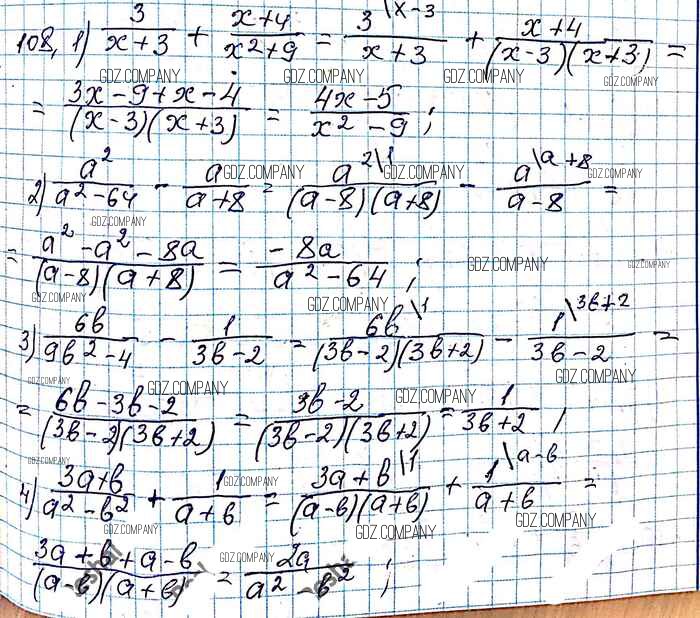 108, 1) 3/(x+3) + (x+4)/(x²+9) = 3\x-3/(x+3) + (x+4)/((x-3)(x+3)) =
GDZ.COMPANY GDZ.COMPANY GDZ.COMPANY GDZ.COMPANY
= (3x-9+x-4)/((x-3)(x+3)) = (4x-5)/(x²-9);
2) a²/(a²-64) - a/(a+8) = a²\1/((a-8)(a+8)) - a\a+8/(a-8) =
GDZ.COMPANY GDZ.COMPANY GDZ.COMPANY
GDZ.COMPANY
= (a²-a²-8a)/((a-8)(a+8)) = -8a/(a²-64);
GDZ.COMPANY GDZ.COMPANY
GDZ.COMPANY GDZ.COMPANY
3) 6b/(9b²-4) - 1/(3b-2) = 6b\1/((3b-2)(3b+2)) - 1\3b+2/(3b-2) =
GDZ.COMPANY GDZ.COMPANY GDZ.COMPANY
= (6b-3b-2)/((3b-2)(3b+2)) = (3b-2)/((3b-2)(3b+2)) = 1/(3b+2),
GDZ.COMPANY GDZ.COMPANY
GDZ.COMPANY GDZ.COMPANY
4) (3a+b)/(a²-b²) + 1/(a+b) = (3a+b\1)/((a-b)(a+b)) + 1\a-b/(a+b) =
GDZ.COMPANY GDZ.COMPANY
GDZ.COMPANY GDZ.COMPANY GDZ.COMPANY
(3a+b+a-b)/((a-b)(a+b)) = 2a/(a²-b²);
GDZ.COMPANY GDZ.COMPANY